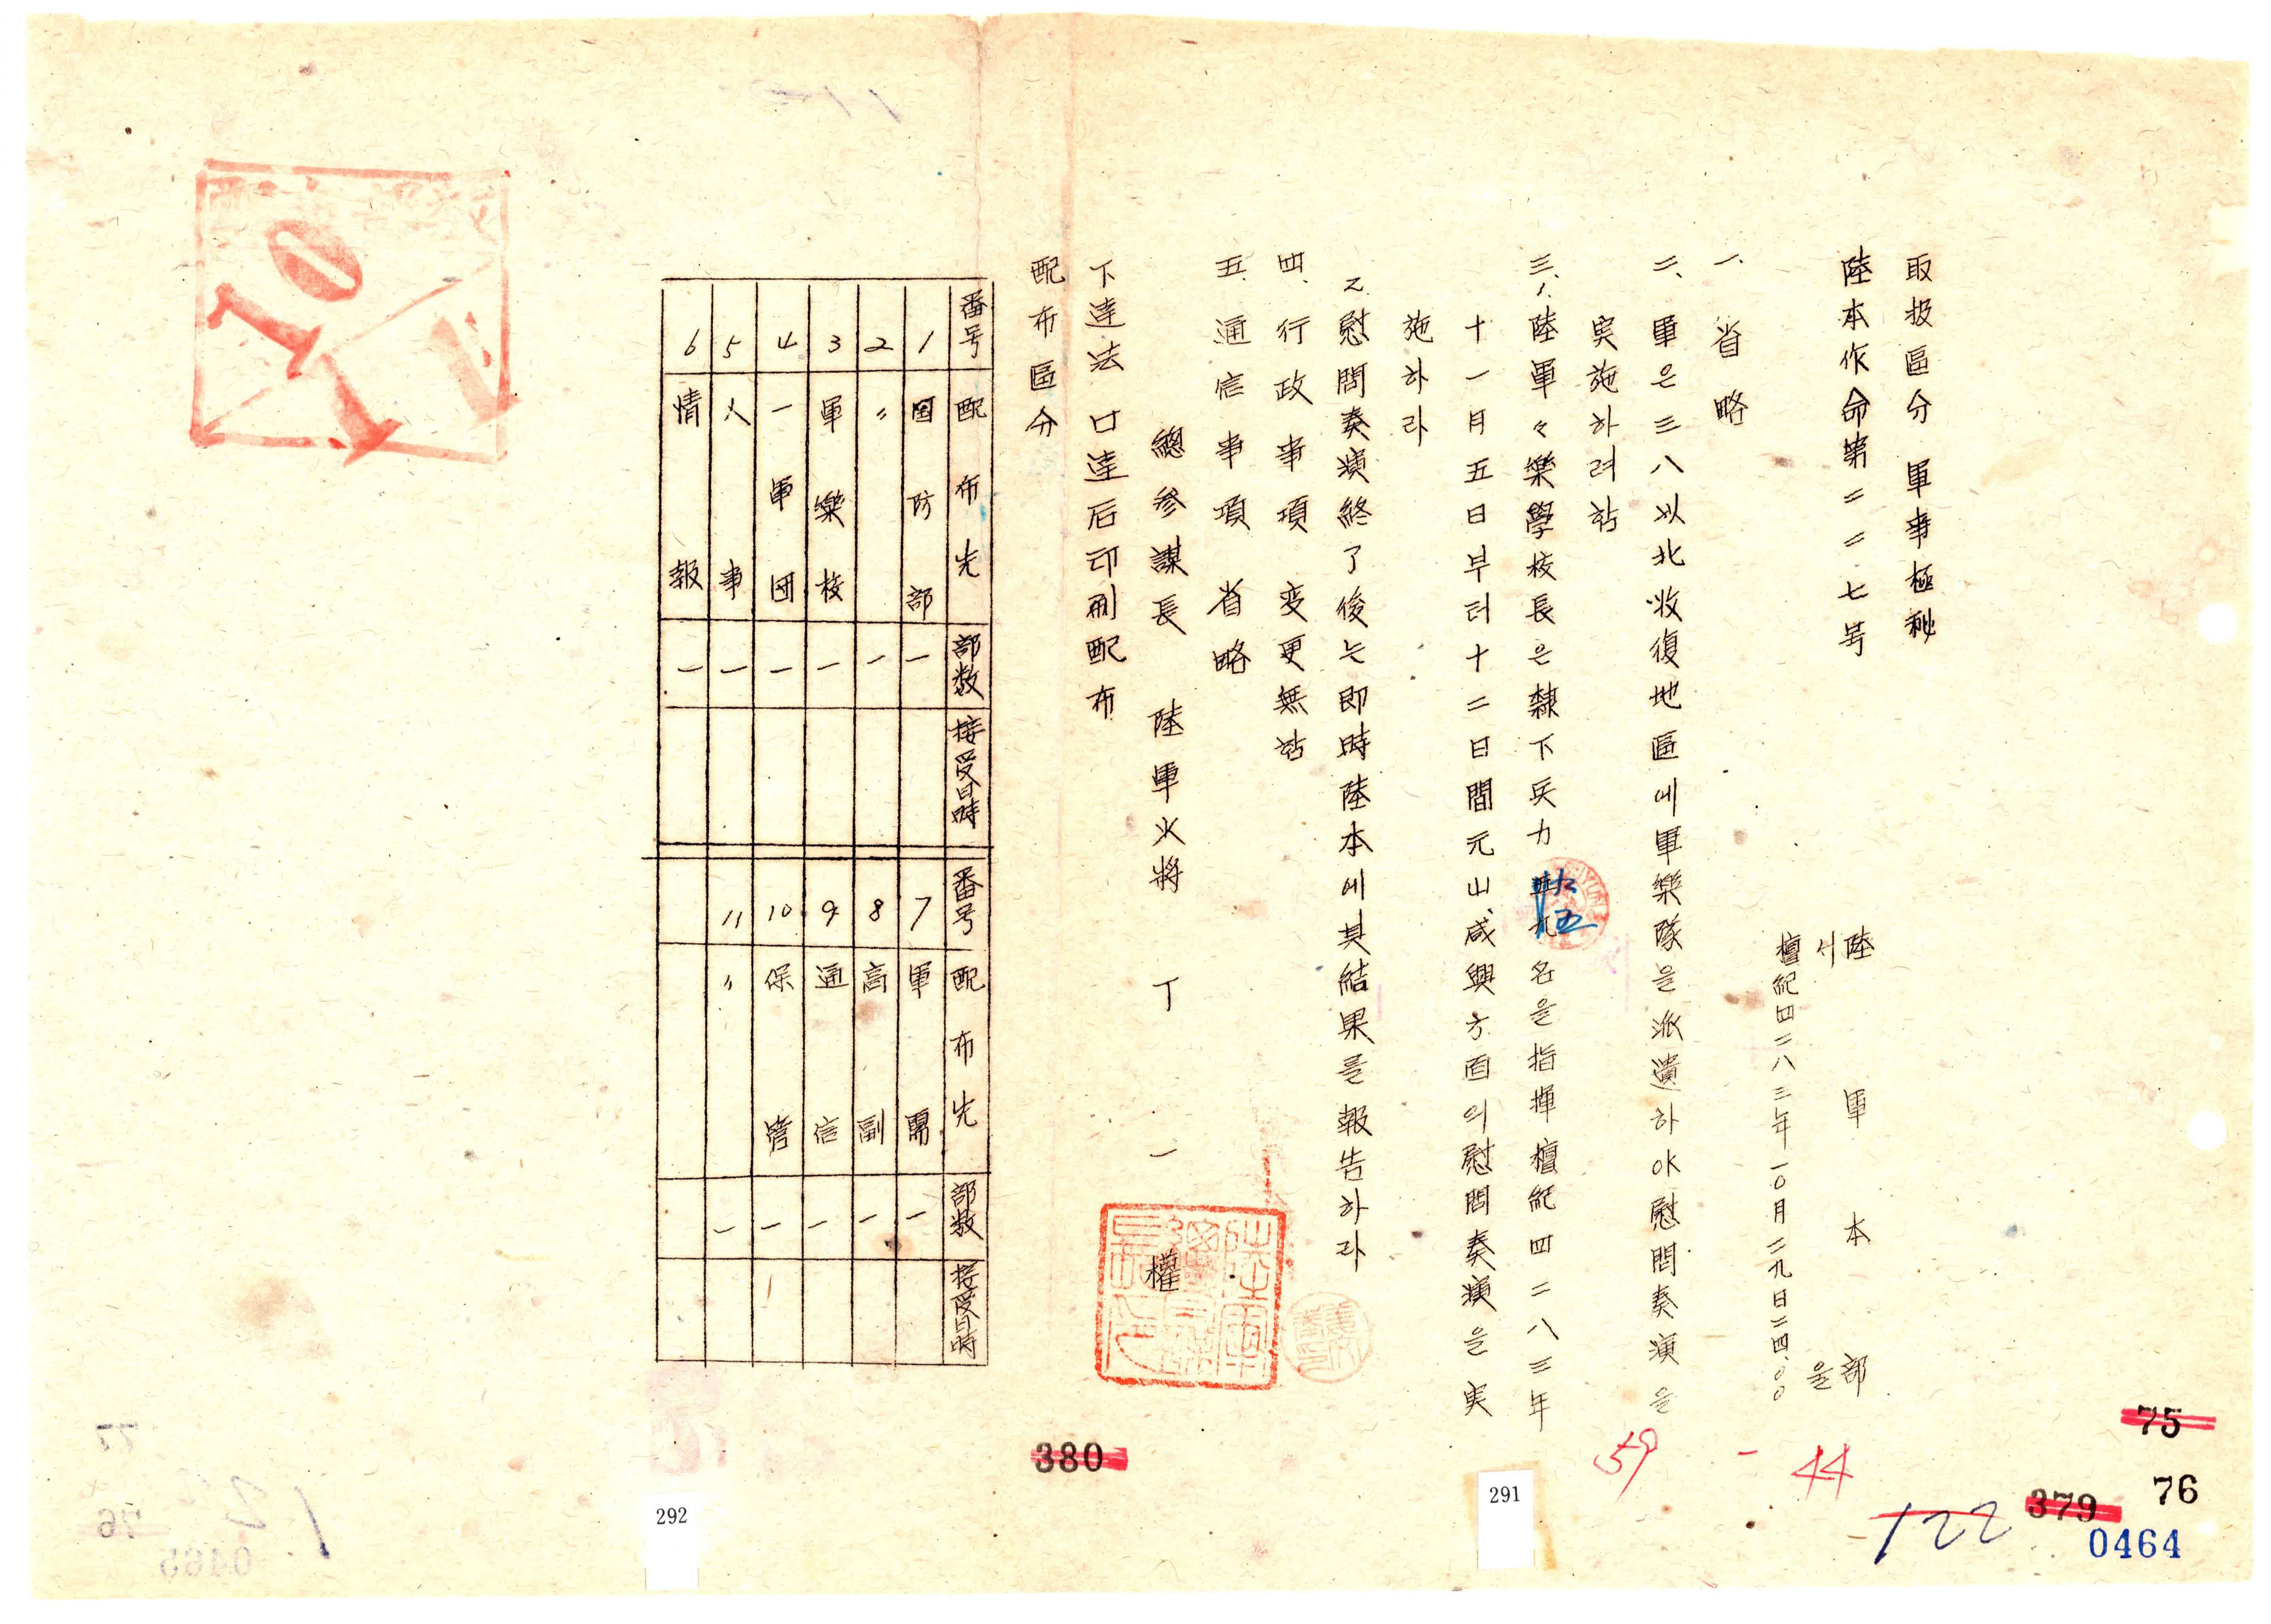 取扱區分 軍事極秘
陸本作命第二二七号
陸軍本部
서울
檀紀四二八三年一〇月二九日二四.〇〇
一、省略
二、軍은 三八以北收復地區에 軍樂隊을 派遣하야 慰問奏演을
実施하려함
三、1.陸軍々樂學校長은 隷下兵力 名을 指揮 檀紀四二八三年
十一月五日부터 十二日間 元山、咸興方面의 慰問奏演을 実
施하라
2.慰問奏演終了後는 即時陸本에 其結果를 報告하라
四、行政事項 変更無함
五、通信事項 省略
總参謀長 陸軍少將 丁一權
下達法 口達后印刷配布
配布區分
番号 配布先 部数 接受日時
1 国防部 一
2 〃 一
3 軍樂校 一
4 一軍団 一
5 人事 一
6 情報 一
番号 配布先 部数 接受日時
7 軍需 一
8 高副 一
9 通信 一
10 保管 一
11 〃 一
59 - 44
75
76
379
380
122
0464
291
292